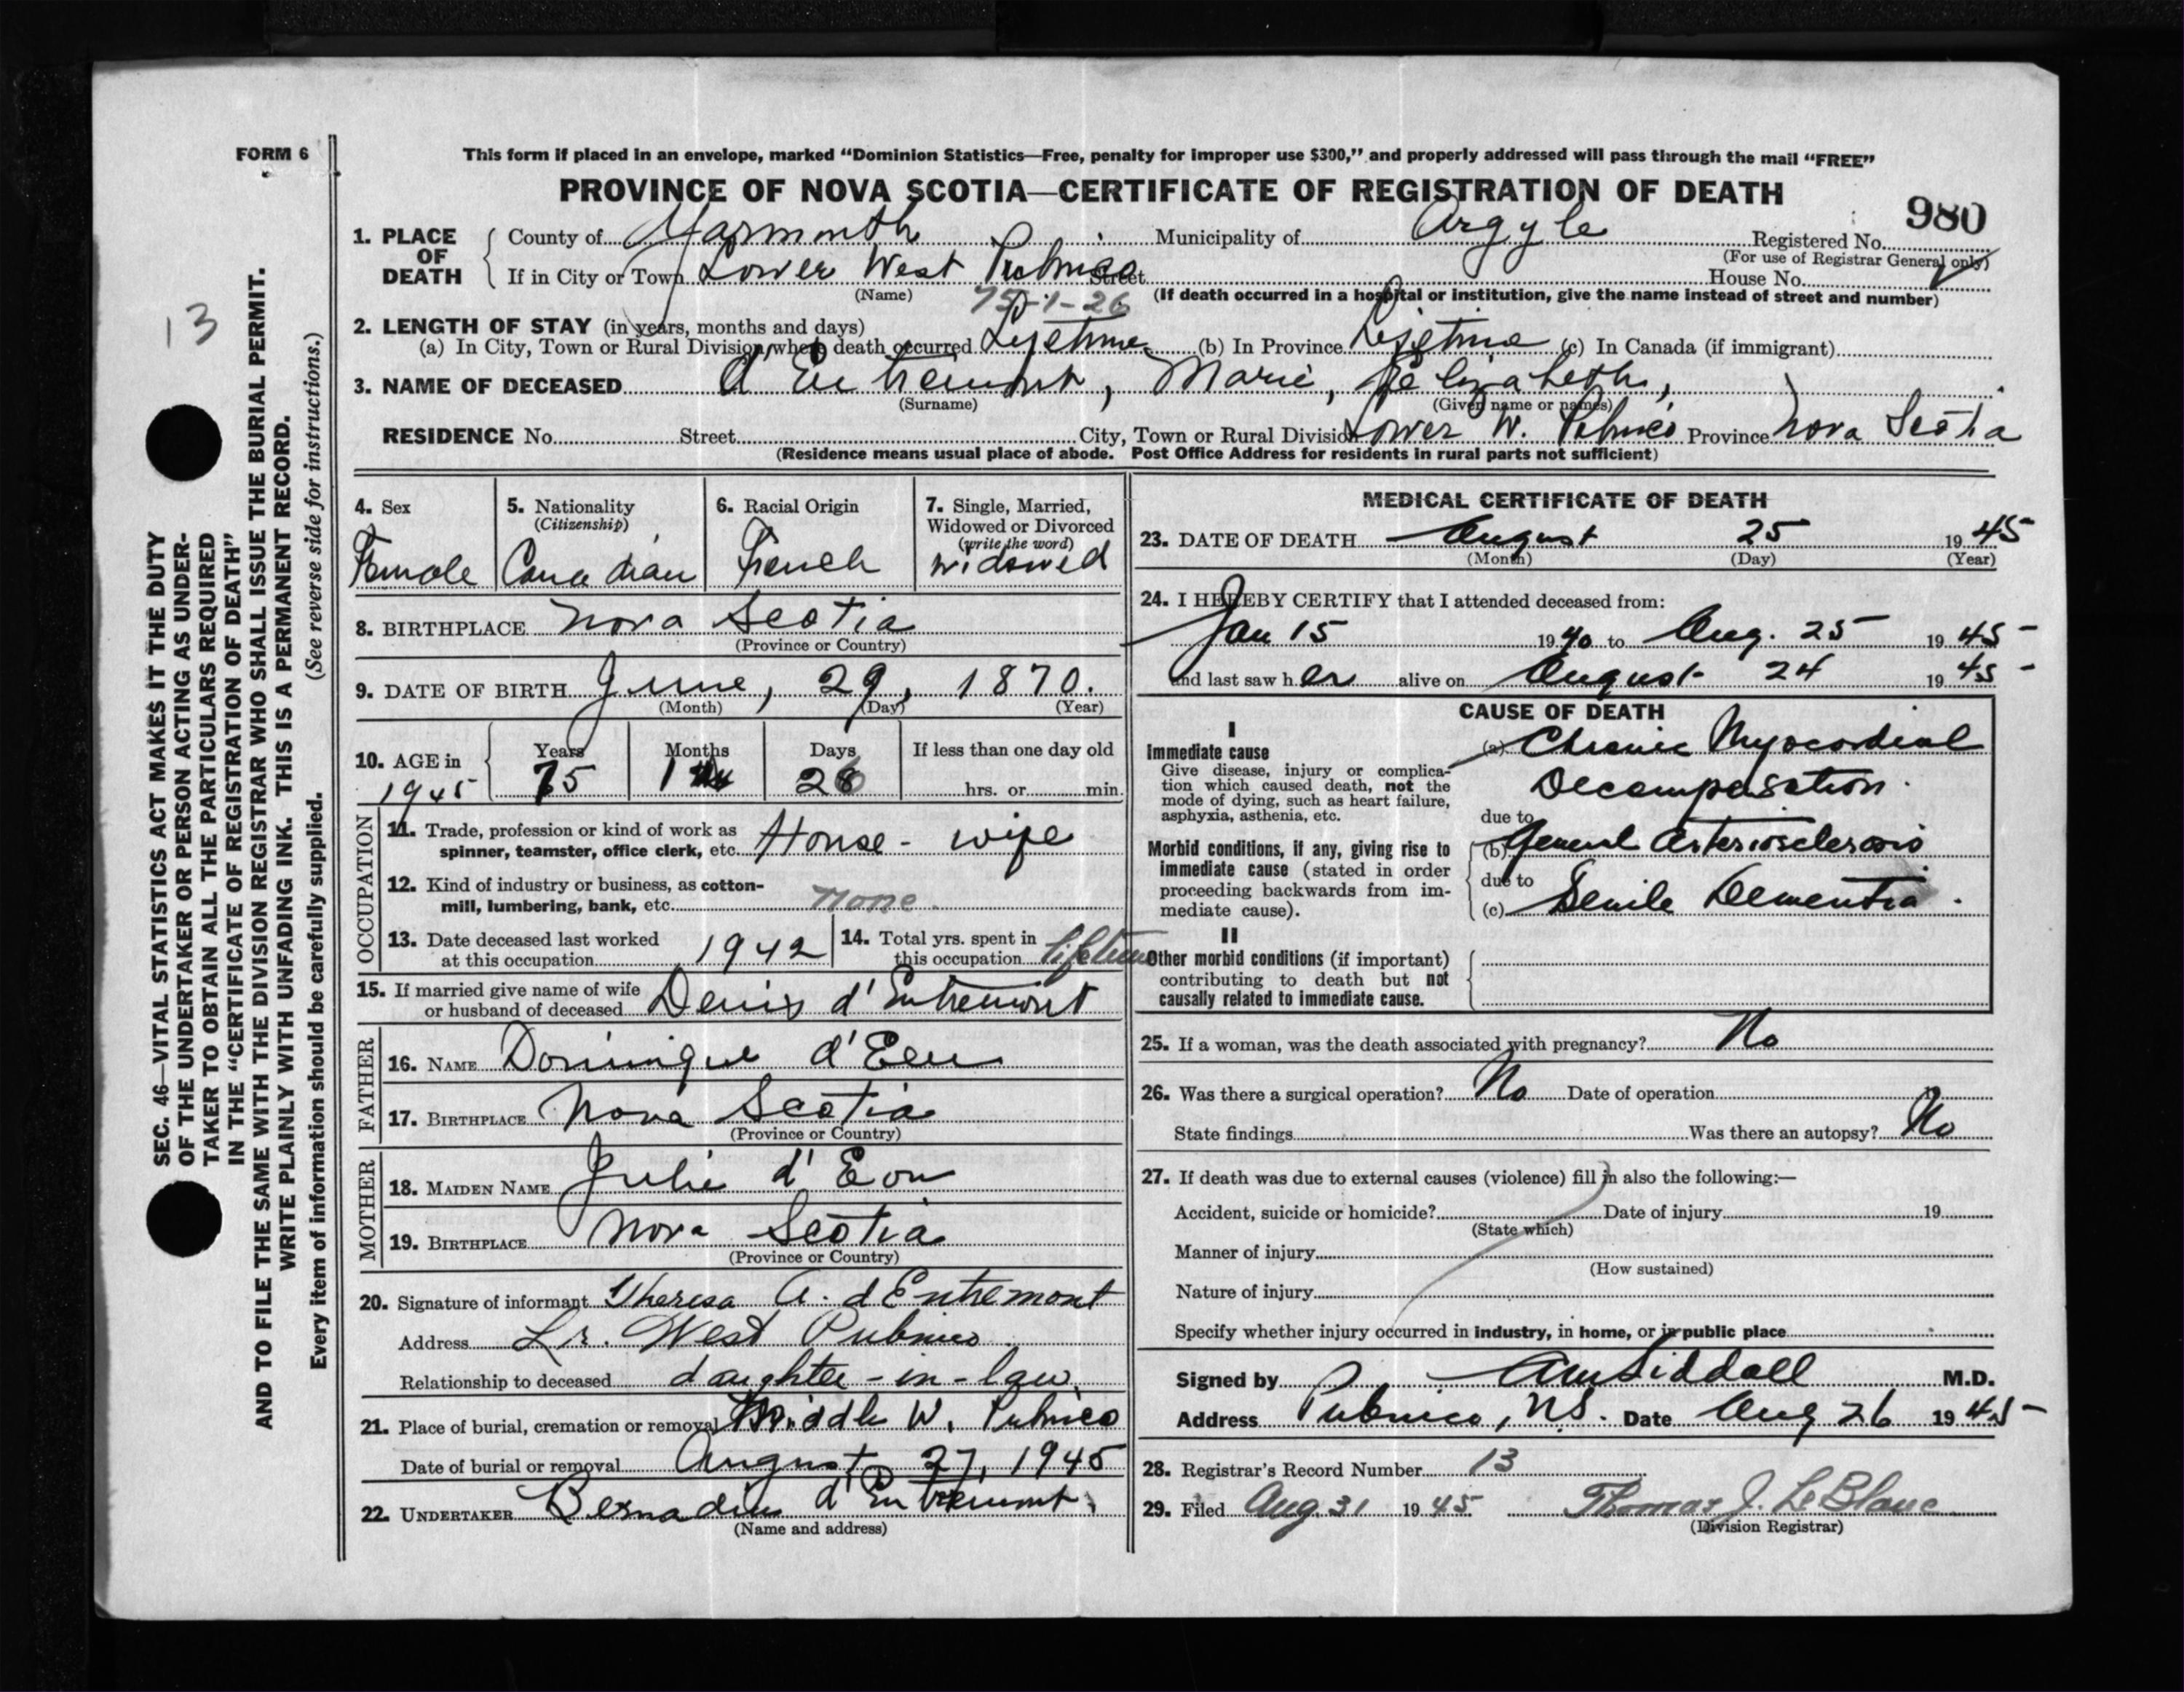 FORM 6
This form if placed in an envelope, marked “Dominion Statistics—Free, penalty for improper use $300,” and properly addressed will pass through the mail “FREE”
PROVINCE OF NOVA SCOTIA—CERTIFICATE OF REGISTRATION OF DEATH
980
1. PLACE OF DEATH County of Yarmouth Municipality of Argyle Registered No.
(For use of Registrar General only)
If in City or Town Lower West Pubnico Street House No.
(Name) (If death occurred in a hospital or institution, give the name instead of street and number)
75-1-26
2. LENGTH OF STAY (in years, months and days)
(a) In City, Town or Rural Division where death occurred Lifetime (b) In Province Lifetime (c) In Canada (if immigrant)
3. NAME OF DECEASED d'Entremont, Marie, Elizabeth,
(Surname) (Given name or names)
RESIDENCE No. Street City, Town or Rural Division Lower W. Pubnico Province Nova Scotia
(Residence means usual place of abode. Post Office Address for residents in rural parts not sufficient)
4. Sex Female
5. Nationality (Citizenship) Canadian
6. Racial Origin French
7. Single, Married, Widowed or Divorced (write the word) Widowed
8. BIRTHPLACE Nova Scotia
(Province or Country)
9. DATE OF BIRTH June, 29, 1870.
(Month) (Day) (Year)
10. AGE in 1945 Years 75 Months 1 Days 26 If less than one day old
hrs. or min.
OCCUPATION
11. Trade, profession or kind of work as
spinner, teamster, office clerk, etc. House-wife
12. Kind of industry or business, as cotton-
mill, lumbering, bank, etc. None.
13. Date deceased last worked
at this occupation 1942
14. Total yrs. spent in
this occupation lifetime
15. If married give name of wife
or husband of deceased Denis d'Entremont
FATHER
16. NAME Dominique d'Eon
17. BIRTHPLACE Nova Scotia
(Province or Country)
MOTHER
18. MAIDEN NAME Julie d'Eon
19. BIRTHPLACE Nova Scotia
(Province or Country)
20. Signature of informant Theresa A. d'Entremont
Address Lr. West Pubnico
Relationship to deceased daughter-in-law.
21. Place of burial, cremation or removal Middle W. Pubnico
Date of burial or removal August 27, 1945
22. UNDERTAKER Bernadin d'Entremont,
(Name and address)
MEDICAL CERTIFICATE OF DEATH
23. DATE OF DEATH August 25 1945
(Month) (Day) (Year)
24. I HEREBY CERTIFY that I attended deceased from:
Jan 15 1940 to Aug. 25 1945
and last saw her alive on August 24 1945
CAUSE OF DEATH
I
Immediate cause
Give disease, injury or complica-
tion which caused death, not the
mode of dying, such as heart failure,
asphyxia, asthenia, etc.
(a) Chronic Myocordial
Decompensation.
due to
Morbid conditions, if any, giving rise to
immediate cause (stated in order
proceeding backwards from im-
mediate cause).
(b) General Arteriosclerosis
due to
(c) Senile Dementia.
II
Other morbid conditions (if important)
contributing to death but not
causally related to immediate cause.
25. If a woman, was the death associated with pregnancy? No
26. Was there a surgical operation? No Date of operation 19
State findings Was there an autopsy? No
27. If death was due to external causes (violence) fill in also the following:—
Accident, suicide or homicide? Date of injury 19
(State which)
Manner of injury
(How sustained)
Nature of injury
Specify whether injury occurred in industry, in home, or in public place
Signed by AM Siddall M.D.
Address Pubnico, N.S. Date Aug 26 1945
28. Registrar's Record Number 13
29. Filed Aug. 31 1945 Thomas J. LeBlanc
(Division Registrar)
13
SEC. 46—VITAL STATISTICS ACT MAKES IT THE DUTY
OF THE UNDERTAKER OR PERSON ACTING AS UNDER-
TAKER TO OBTAIN ALL THE PARTICULARS REQUIRED
IN THE “CERTIFICATE OF REGISTRATION OF DEATH”
AND TO FILE THE SAME WITH THE DIVISION REGISTRAR WHO SHALL ISSUE THE BURIAL PERMIT.
WRITE PLAINLY WITH UNFADING INK. THIS IS A PERMANENT RECORD.
Every item of information should be carefully supplied. (See reverse side for instructions.)